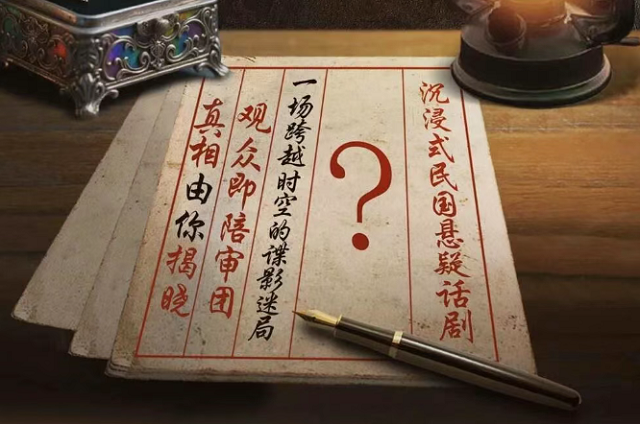 沉浸式民国悬疑话剧
?
一场跨越时空的谍影迷局
观众即陪审团
真相由你揭晓